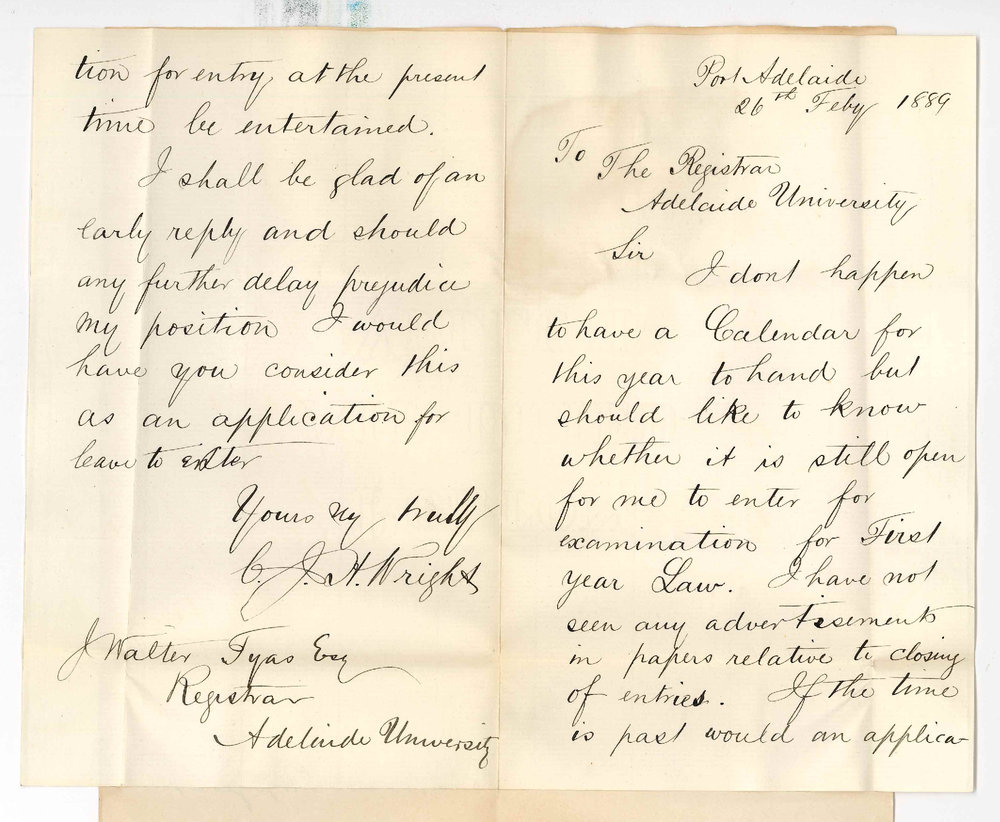 Port Adelaide
26th Feby 1889
To
The Registrar
Adelaide University
Sir
I dont happen
to have a Calendar for
this year to hand but
should like to know
whether it is still open
for me to enter for
examination for First
year Law. I have not
seen any advertisement
in papers relative to closing
of entries. If the time
is past would an applica-
tion for entry at the present
time be entertained.
I shall be glad of an
early reply and should
any further delay prejudice
my position I would
have you consider this
as an application for
leave to enter
Yours vy truly
C. J. H. Wright
J Walter Tyas Esq
Registrar
Adelaide University